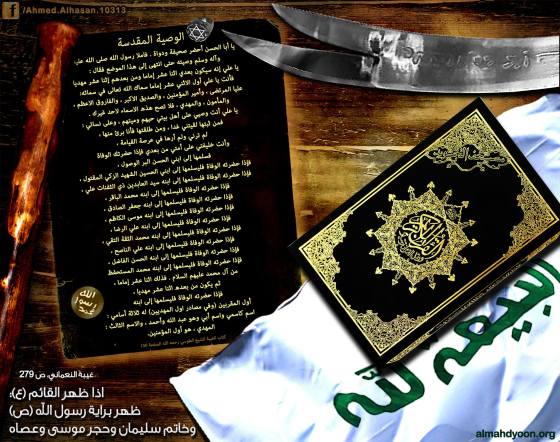 /Ahmed.Alhasan.10313
الوصية المقدسة
يا أبا الحسن أحضر صحيفة ودواة . فاملا رسول الله صلى الله عليه
وآله وسلم وصيته حتى انتهى إلى هذا الموضع فقال :
يا علي إنه سيكون بعدي اثنا عشر إماما ومن بعدهم إثنا عشر مهديا
فأنت يا علي أول الاثني عشر إماما سماك الله تعالى في سمائه:
عليا المرتضى ، وأمير المؤمنين ، والصديق الاكبر ، والفاروق الاعظم ،
والمأمون ، والمهدي ، فلا تصح هذه الاسماء لاحد غيرك .
يا علي أنت وصيي على أهل بيتي حيهم وميتهم ، وعلى نسائي :
فمن ثبتها لقيتني غدا ، ومن طلقتها فأنا برئ منها ،
لم ترني ولم أرها في عرصة القيامة ،
وأنت خليفتي على أمتي من بعدي فإذا حضرتك الوفاة
فسلمها إلى ابني الحسن البر الوصول ،
فإذا حضرته الوفاة فليسلمها إلى ابني الحسين الشهيد الزكي المقتول ،
فإذا حضرته الوفاة فليسلمها إلى ابنه سيد العابدين ذي الثفنات علي ،
فإذا حضرته الوفاة فليسلمها إلى ابنه محمد الباقر ،
فإذا حضرته الوفاة فليسلمها إلى ابنه جعفر الصادق ،
فإذا حضرته الوفاة فليسلمها إلى ابنه موسى الكاظم ،
فإذا حضرته الوفاة فليسلمها إلى ابنه علي الرضا ،
فإذا حضرته الوفاة فليسلمها إلى ابنه محمد الثقة التقي ،
فإذا حضرته الوفاة فليسلمها إلى ابنه علي الناصح ،
فإذا حضرته الوفاة فليسلمها إلى ابنه الحسن الفاضل ،
فإذا حضرته الوفاة فليسلمها إلى ابنه محمد المستحفظ
من آل محمد عليهم السلام . فذلك اثنا عشر إماما ،
ثم يكون من بعده اثنا عشر مهديا ،
فإذا حضرته الوفاة فليسلمها إلى ابنه
أول المقربين (وفي مصادر أول المهديين) له ثلاثة أسامي :
اسم كاسمي واسم أبي وهو عبد الله وأحمد ، والاسم الثالث :
المهدي ، هو أول المؤمنين.
الله
رسول
محمد
القرآن الكريم
البيعة لله
غيبة النعماني، ص 279
اذا ظهر القائم (ع):
ظهر براية رسول الله (ص)
وخاتم سليمان وحجر موسى وعصاه
almahdyoon.org